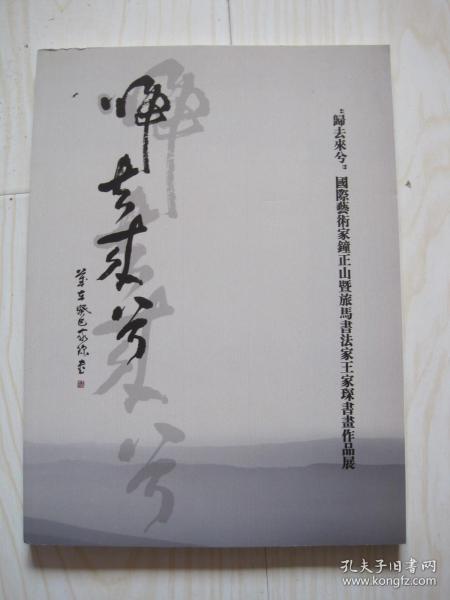 "歸去來兮"國際藝術家鐘正山暨旅馬書法家王家琛書畫作品展
歸去來兮
歲在癸巳
孔夫子旧书网
www.kongfz.com